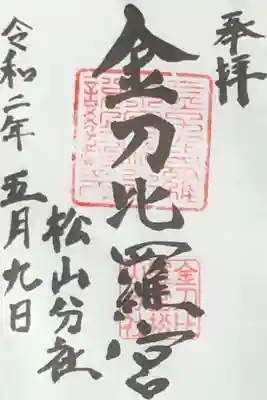 奉拝
金刀比羅宮
松山分社
令和二年五月九日